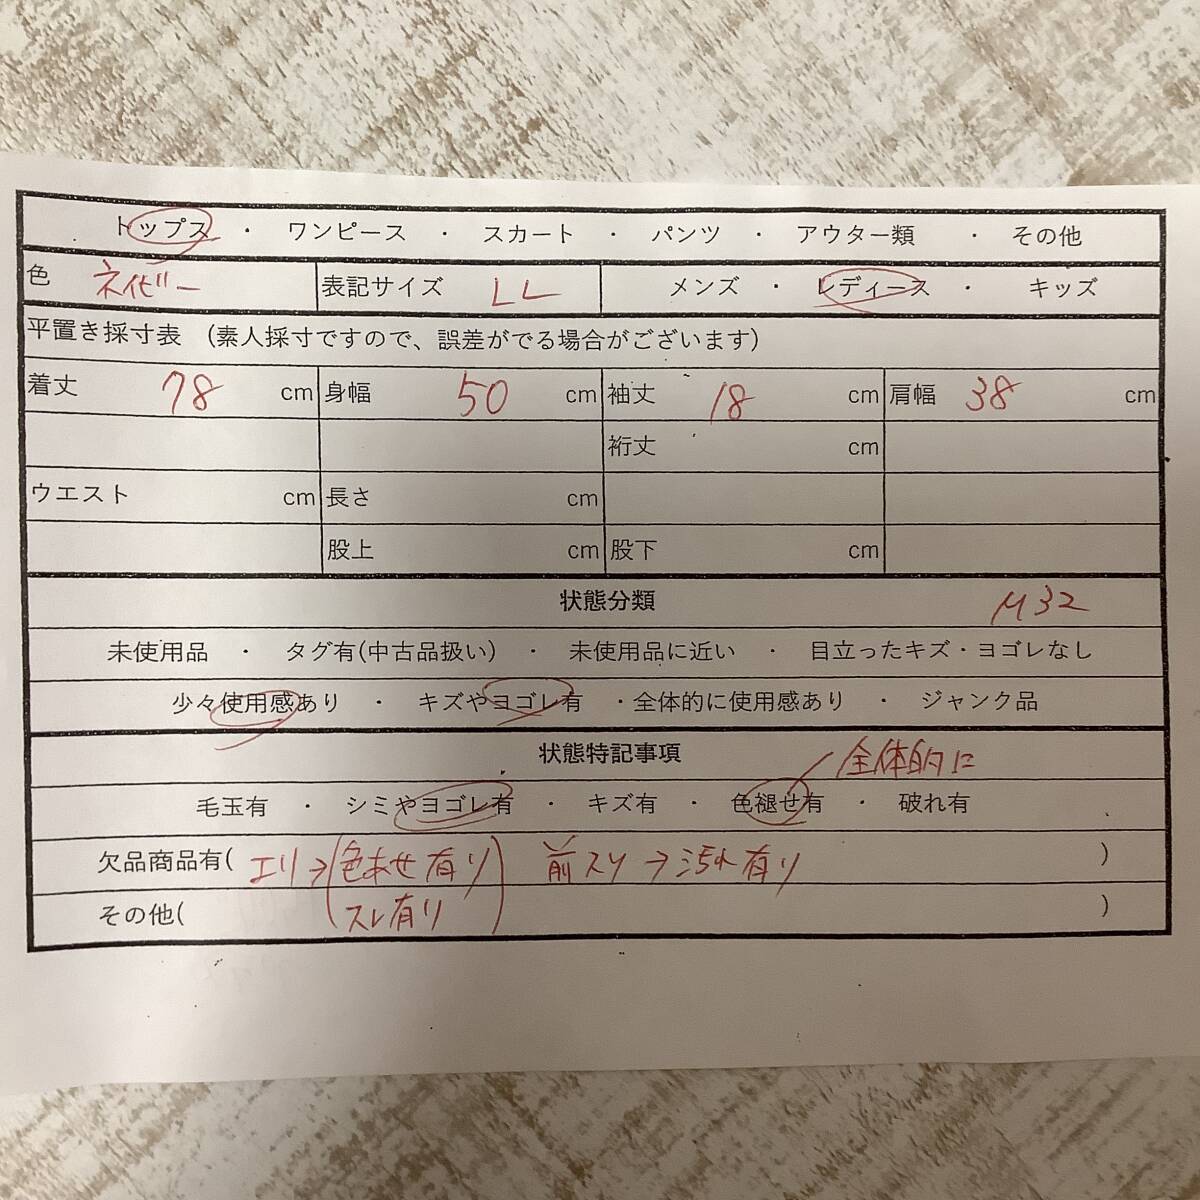 トップス ・ ワンピース ・ スカート ・ パンツ ・ アウター類 ・ その他
色 ネイビー 表記サイズ LL メンズ ・ レディース ・ キッズ
平置き採寸表 (素人採寸ですので、誤差がでる場合がございます)
着丈 78 cm 身幅 50 cm 袖丈 18 cm 肩幅 38 cm
裄丈 cm
ウエスト cm 長さ cm
股上 cm 股下 cm
状態分類 M32
未使用品 ・ タグ有(中古品扱い) ・ 未使用品に近い ・ 目立ったキズ・ヨゴレなし
少々使用感あり ・ キズやヨゴレ有 ・全体的に使用感あり ・ ジャンク品
状態特記事項 全体的に
毛玉有 ・ シミやヨゴレ有 ・ キズ有 ・ 色褪せ有 ・ 破れ有
欠品商品有( エリ→(色あせ有り) 前スソ→汚れ有り )
その他( スレ有り )